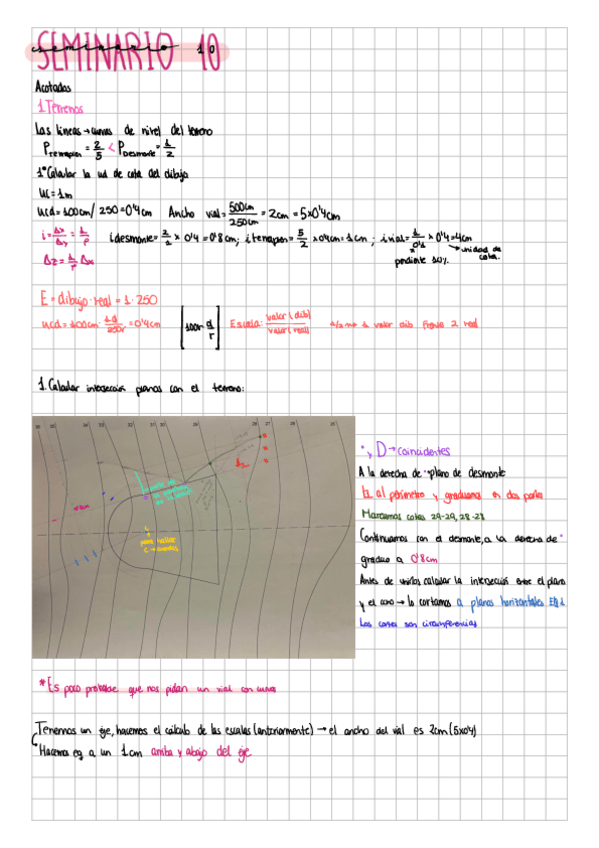 SEMINARIO 10
seminario 10
Acotados
1.Terrenos
Las líneas→curvas de nivel del terreno
Pterraplen = 2/5 < Pdesmonte = 1/2
1º Calcular la ud de cota del dibujo
uc = 1m
ucd = 100cm/250 = 0'4cm Ancho vial = 500cm/250cm = 2cm = 5x0'4cm
i = Δx/Δy = 1/p idesmonte = 2/1 x 0'4 = 0'8cm; iterraplen = 5/2 x 0'4cm = 1cm; ivial = 1/0'1 x 0'4 = 4cm
→unidad de cota.
Δz = 1/p Δx pendiente 10%.
E = dibujo · real = 1·250
ucd = 100cm · 1d/250r = 0'4cm [100r d/r] Escala: valor (dib)/valor (real)
1. Calcular intersección planos con el terreno:
31 30 28 27 26 25
", D→Coincidentes
A la derecha de " plano de desmonte
al perímetro y graduamos en dos partes
Marcamos cotas 29-29, 28-28
Continuamos con el desmonte, a la derecha de "
graduo a 0'8cm
Antes de unirlos calcular la intersección entre el plano
y el cono→ lo cortamos a planos horizontales
Las conos son circunferencias
*Es poco probable que nos pidan un vial con curva
Tenemos un eje, hacemos el cálculo de las escalas (anteriormente) → el ancho del vial es 2cm (5x0'4)
Hacemos eq a un 1cm arriba y abajo del eje